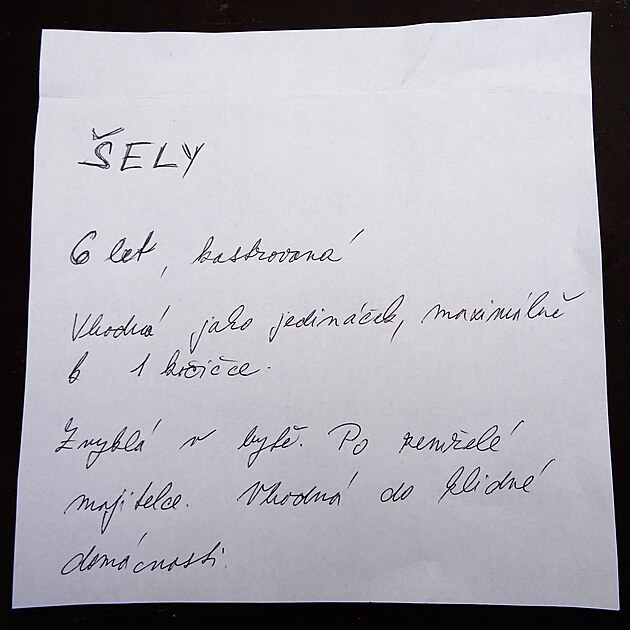 ŠELY
6 let, kastrovaná
Vhodná jako jedináček, maximálně
k 1 kočičce.
Zvyklá v bytě. Po zemřelé
majitelce. Vhodná do klidné
domácnosti.